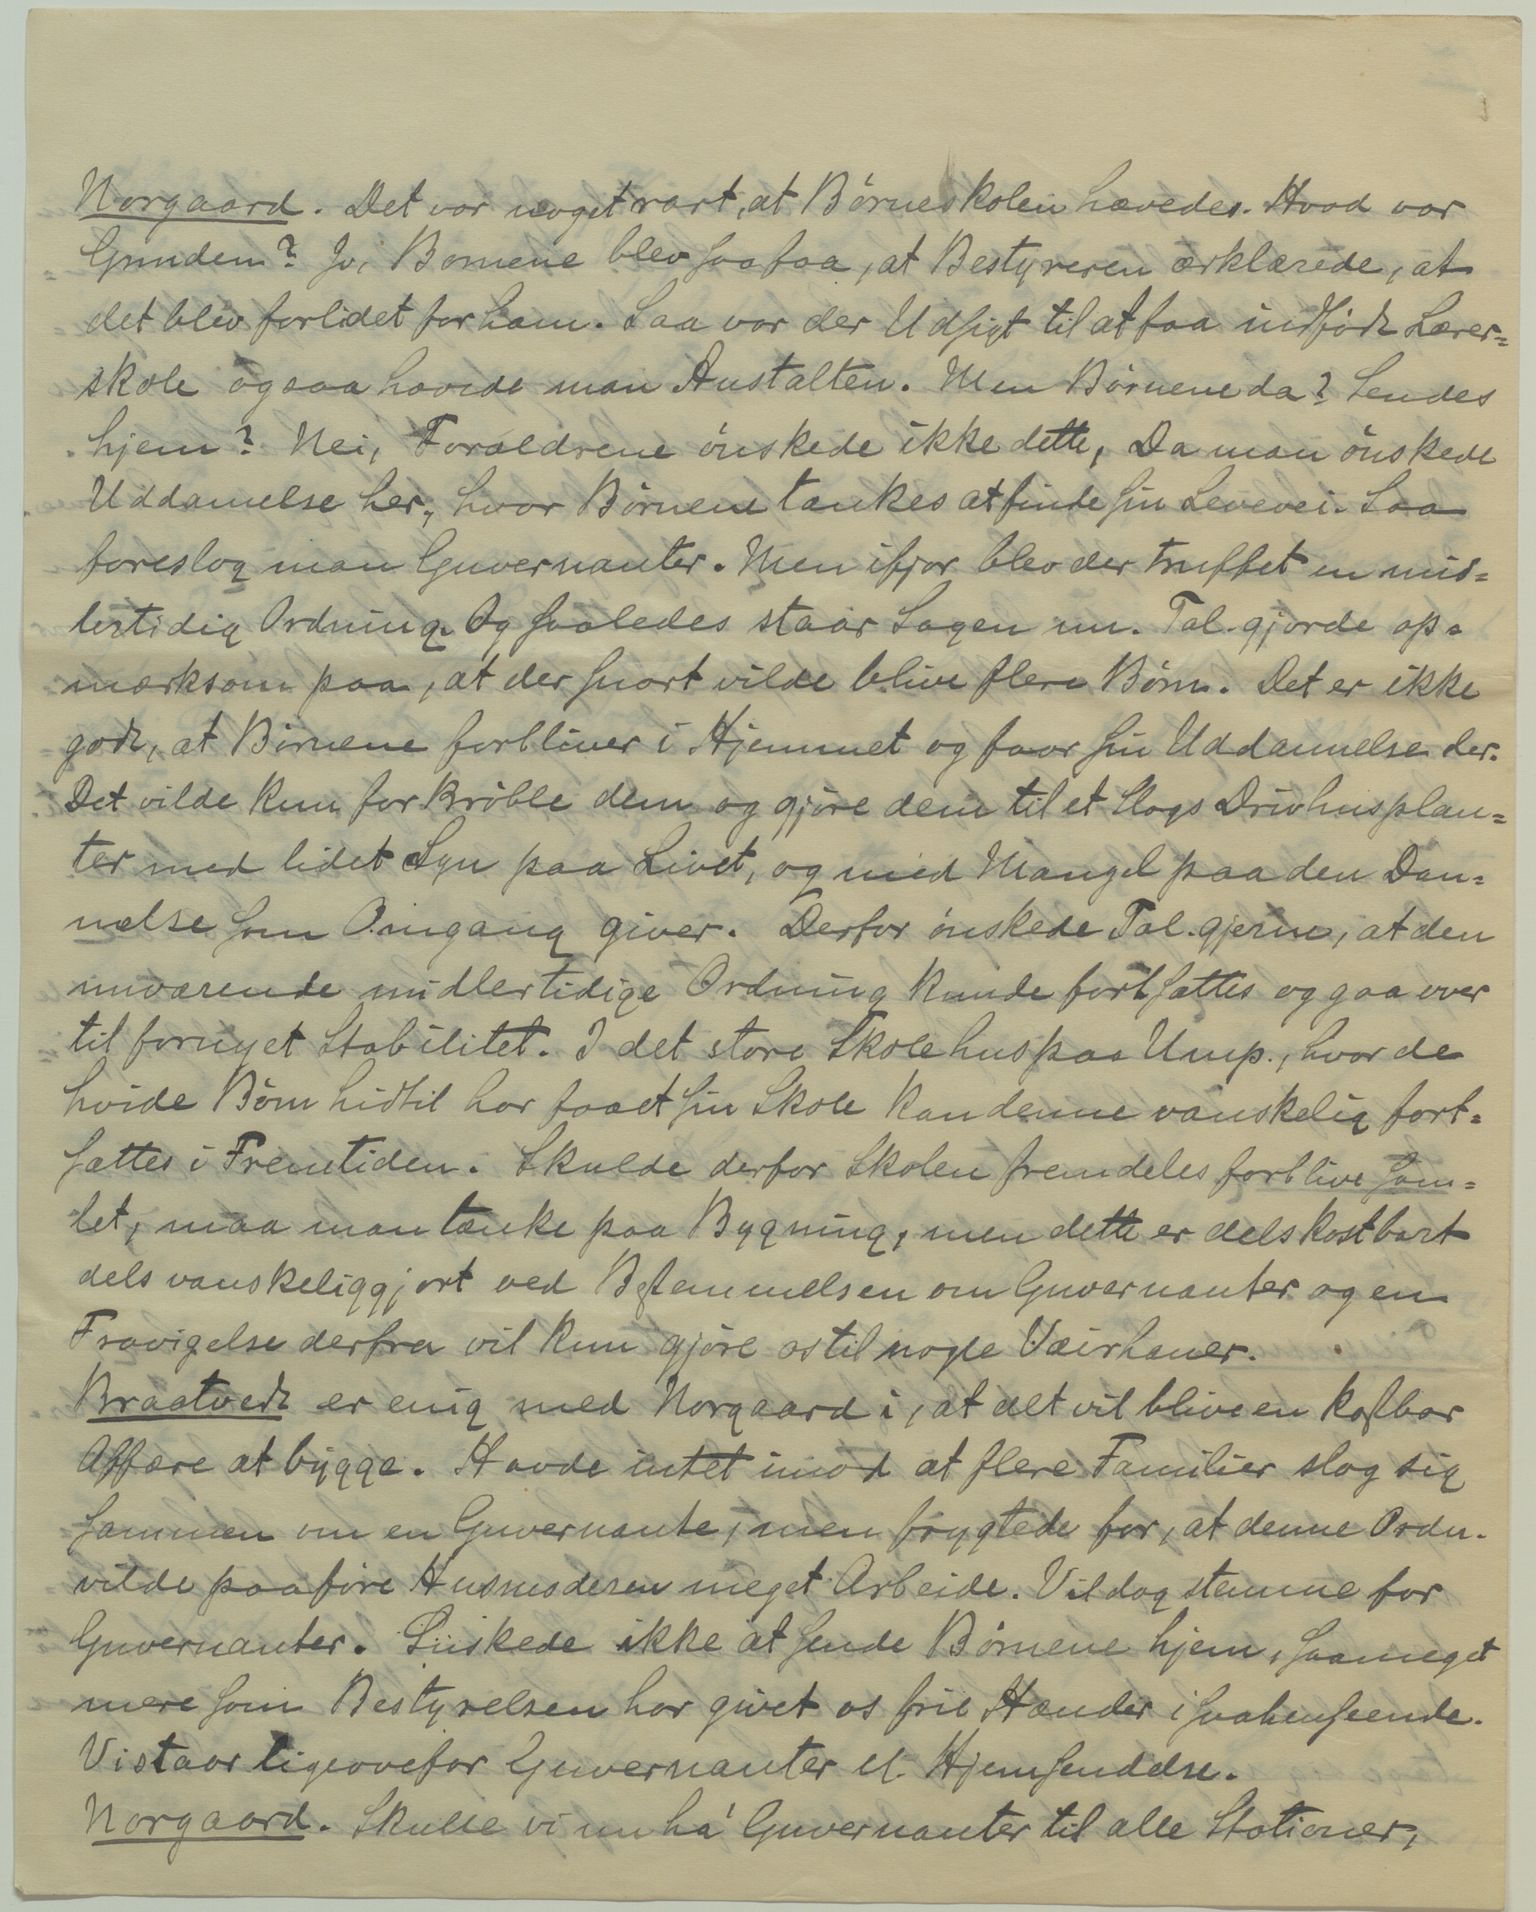 Norgaard. Det var noget rart, at Børneskolen hævedes. Hvad var
Grunden? Jo, Børnene blev saa faa, at Bestyreren ærklærede, at
det blev forlidet for ham. Saa var der Udsigt til at faa indfødt Lærer-
skole og saa hævede man Anstalten. Men Børnene da? Sendes
hjem? Nei, Forældrene ønskede ikke dette, Da man ønskede
Uddannelse her, hvor Børnene tænkes at finde sin Levevei. Saa
foreslog man Guvernanter. Men ifjor blev der truffet en mid-
lertidig Ordning. Og saaledes staar Sagen nu. Tal. gjorde op-
mærksom paa, at der snart vilde blive flere Børn. Det er ikke
godt, at Børnene forbliver i Hjemmet og faar sin Uddannelse der.
Det vilde kun forkrøble dem og gjøre dem til et Slags Drivhusplan-
ter med lidet Syn paa Livet, og med Mangel paa den Dan-
nelse som Omgang giver. Derfor ønskede Tal. gjerne, at den
nuværende midlertidige Ordning kunde fortsættes og gaa over
til fornyet Stabilitet. I det store Skolehus paa Ump., hvor de
hvide Børn hidtil har faaet sin Skole kan denne vanskelig fort-
sættes i Fremtiden. Skulde derfor Skolen fremdeles forblive sam-
let, maa man tænke paa Bygning, men dette er dels kostbart
dels vanskeliggjort ved Bestemmelsen om Guvernanter og en
Fravigelse derfra vil kun gjøre os til nogle Veirhaner.
Braatvedt er enig med Norgaard i, at det vil blive en kostbar
Affære at bygge. Havde intet imod at flere Familier slog sig
sammen om en Guvernante, men frygtede for, at denne Ordn.
vilde paaføre Husmoderen meget Arbeide. Vil dog stemme for
Guvernanter. Ønskede ikke at sende Børnene hjem, saameget
mere som Bestyrelsen har givet os frie Hænder i saahenseende.
Vi staar ligeoverfor Guvernanter el. Hjemsendelse.
Norgaard. Skulle vi nu ha' Guvernanter til alle Stationer,